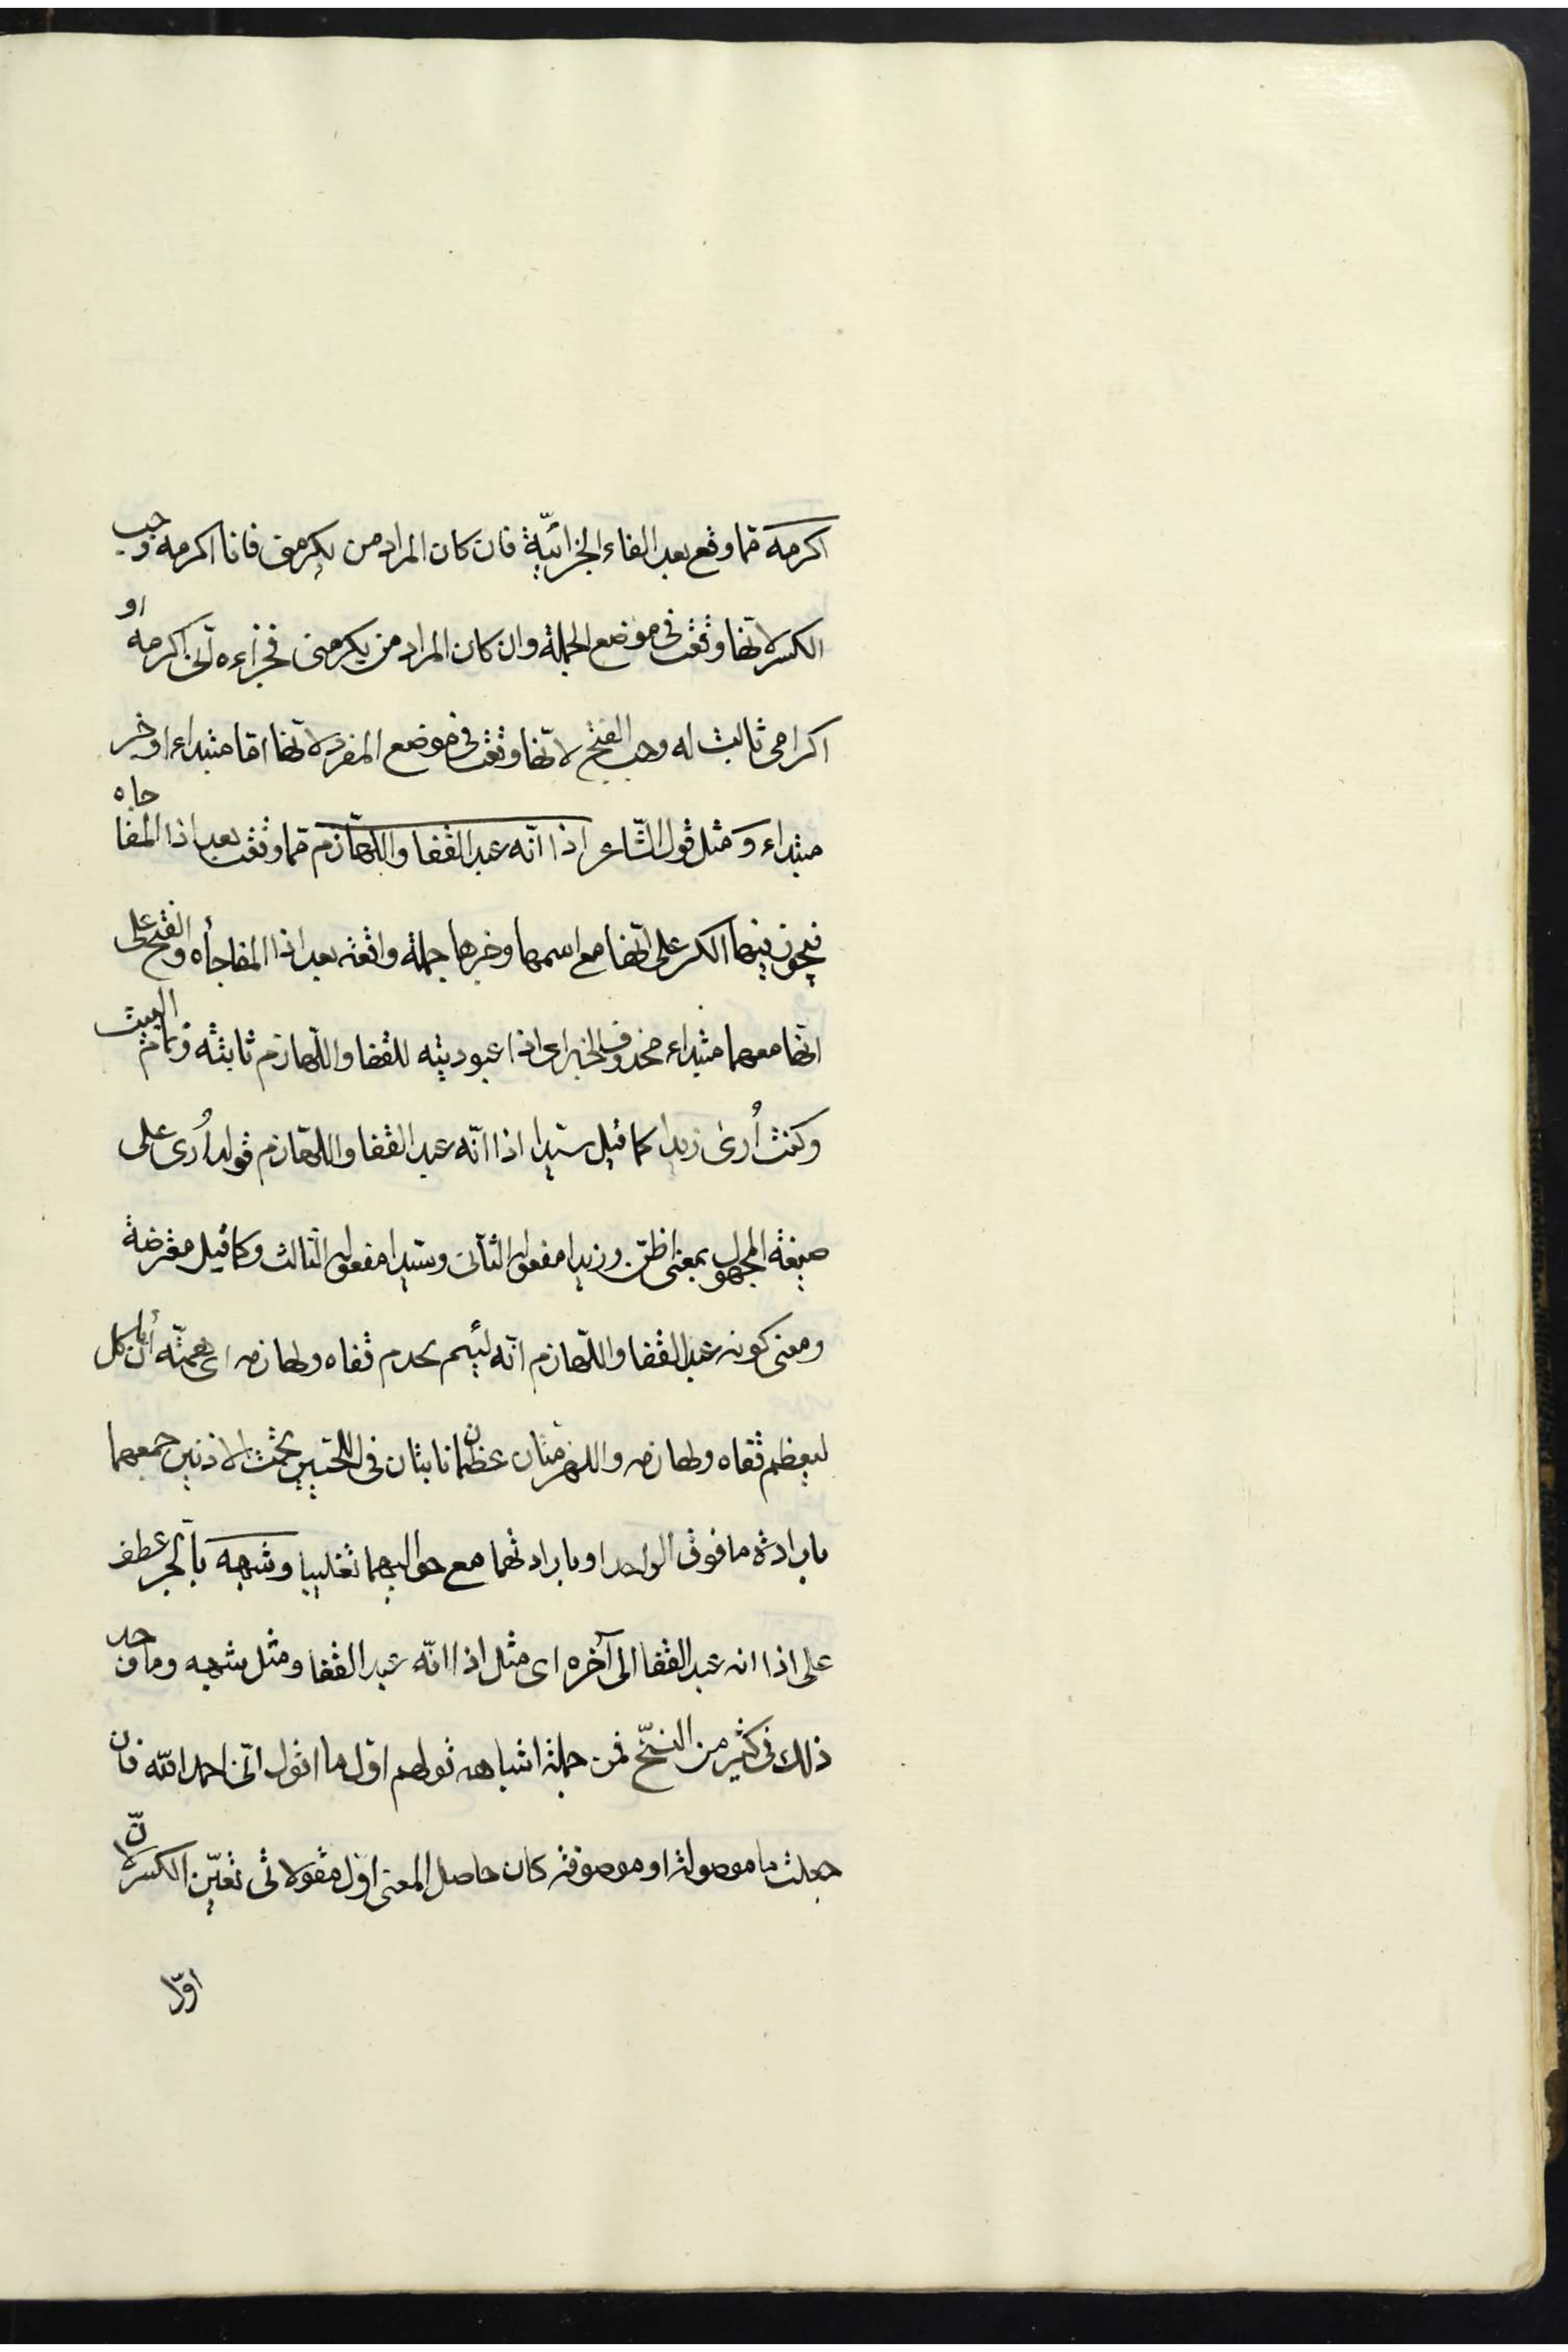 اكرمه مما وقع بعد الفاء الجزائيّة فان كان المراد من يكرمنى فانا اكرمه وجب
الكسر لانّها وقعت فى موضع الجملة وان كان المراد من يكرمنى فجزاءه انّى اكرمه او
اكرامى ثابت له وجب الفتح لانّها وقعت فى موضع المفرد لانّها امّا مبتداء او خبر
مبتداء وَمثل قول الشّاعر اذا انّه عبد القفا واللّهازم ممّا وقعت بعد اذا المفاجاه
فيجوز فيها الكسر على انّها مع اسمها وخبرها جملة واقعة بعد اذا المفاجأه والفتح على
انّها معهما مبتداء محذوف الخبر اى اذا عبوديته للقفا واللّهازم ثابتة وتمام البيت
وكنت اُرىٰ زيدا كما قيل سيّدا اذا انّه عبد القفا واللّهازم قوله اُرى على
صيغة المجهول بمعنى اظنّ وزيدا مفعوله الثّانى وسيّدا مفعوله الثّالث وكما قيل معترضة
ومعنى كونه عبد القفا واللّهازم انّه لئيم يخدم قفاه ولهازمه اى همّته أن يأكل
ليعظم قفاه ولهازمه واللهزمتان عظمان نابتان فى اللحيين تحت الاذنين جمعهما
بارادة ما فوق الواحد او بارادتهما مع حواليهما تغليبا وشبهه بالجر عطف
على اذا انه عبد القفا الى آخره اى مثل اذا انّه عبد القفا ومثل شبهه وما وجد
ذلك فى كثير من النسّخ فمن جملة اشباهه قولهم اوّل ما اقول انّى احمد اللّه فان
جعلت ما موصولة او موصوفة كان حاصل المعنى اوّل مقولاتى تعيّن الكسر لانّ
اوّل